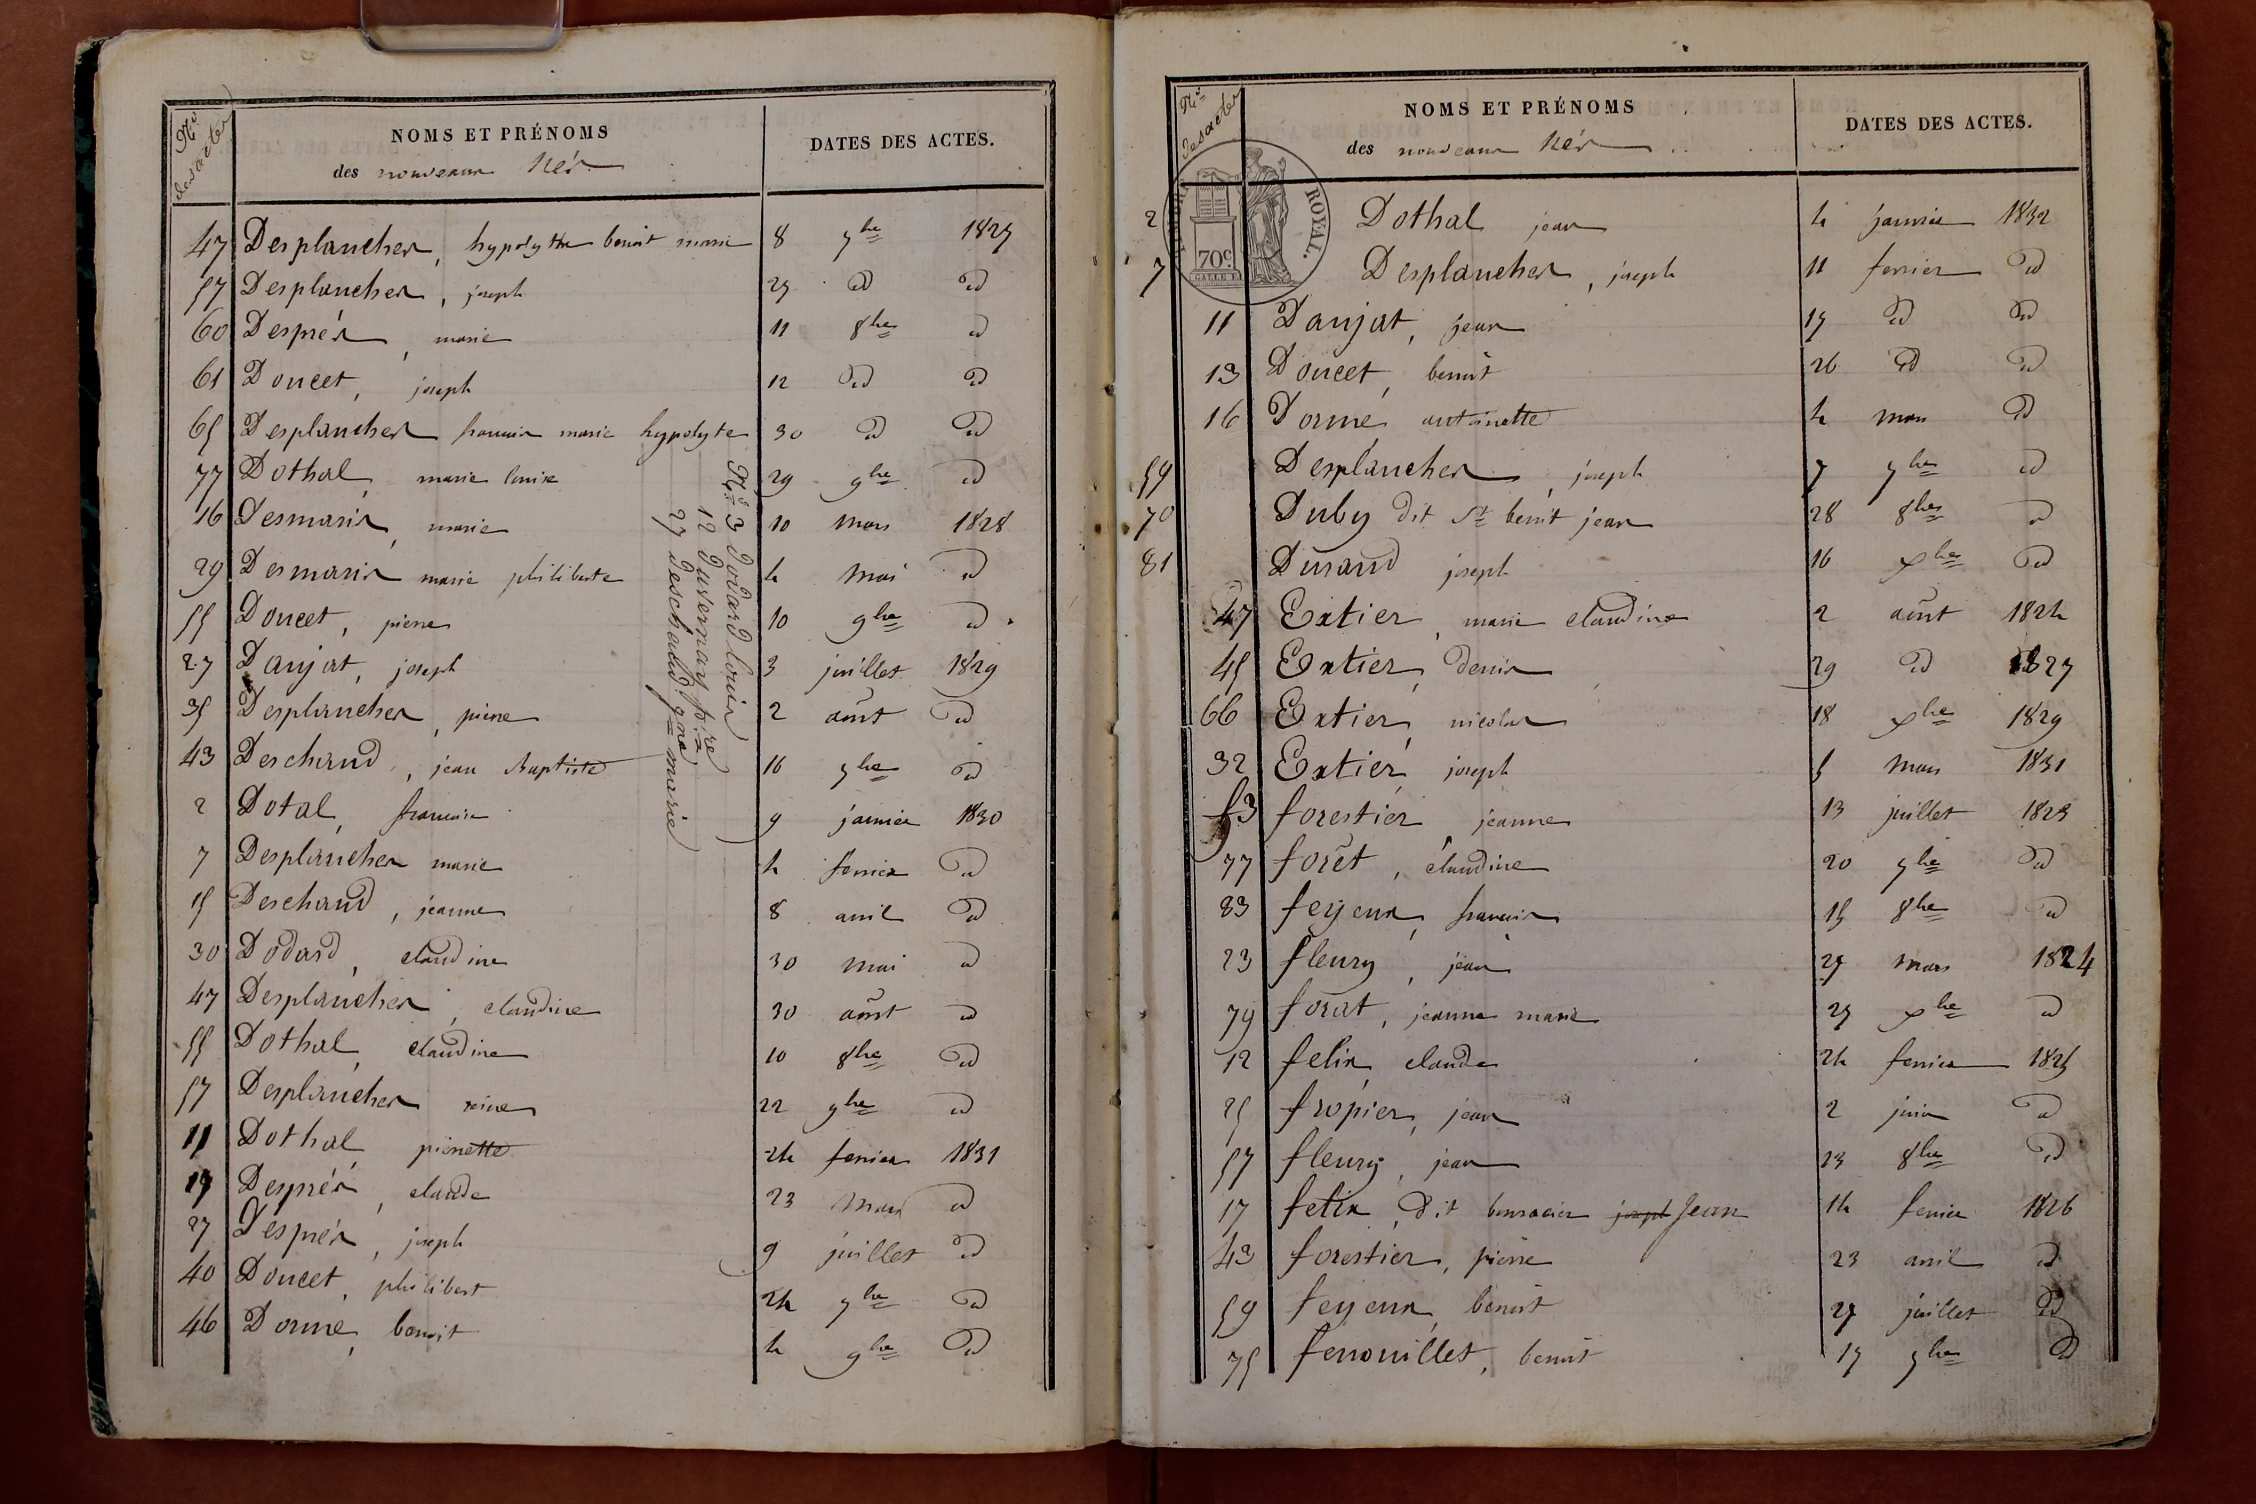 Nos des actes
NOMS ET PRÉNOMS
des nouveaux Nés
DATES DES ACTES.
47 Desplanches, hypolythe benoit marie 8 7bre 1827
57 Desplanches, joseph 27 id id
60 Després, marie 11 8bre id
61 Doucet, joseph 12 id id
65 Desplanches francois marie hypolyte 30 id id
77 Dothal, marie louise 29 9bre id
16 Desmaris, marie 10 mars 1828
29 Desmaris marie philiberte 4 mai id
55 Doucet, pierre 10 9bre id
27 Danjat, joseph 3 juillet 1829
35 Desplanches, pierre 2 août id
43 Deschaud, jean Baptiste 16 7bre id
2 Dotal, francois 9 janvier 1830
7 Desplanches marie 4 fevrier id
15 Deschaud, jeanne 8 avril id
30 Dodard, claudine 30 mai id
47 Desplanches, claudine 30 août id
55 Dothal, claudine 10 8bre id
57 Desplanches reine 22 9bre id
11 Dothal pierrette 24 fevrier 1831
19 Després, claude 23 mars id
27 Després, joseph 9 juillet id
40 Doucet, philibert 24 7bre id
46 Dorme, benoit 4 9bre id
No 3 Dodard Louis
12 Duvernay pre
27 Deschaud jne marie
Nos des actes
NOMS ET PRÉNOMS
des nouveaux Nés
DATES DES ACTES.
ROYAL.
70c
2 Dothal jean 4 janvier 1832
7 Desplanches, joseph 11 fevrier id
11 Danjat, jean 17 id id
13 Doucet, benoit 26 id id
16 Dormé, antoinette 4 mars id
59 Desplanches, joseph 7 7bre id
70 Duby dit St benoit jean 28 8bre id
81 Durand joseph 16 xbre id
47 Extier, marie claudine 2 août 1824
45 Extier, denis 29 id 1827
66 Extier, nicolas 18 xbre 1829
32 Extier, joseph 5 mars 1831
53 forestier, jeanne 13 juillet 1823
77 forêt, claudine 20 7bre id
83 feyeux, francois 15 8bre id
23 fleury, jean 27 mars 1824
79 forat, jeanne marie 27 xbre id
12 felix, claude 24 fevrier 1825
25 fropier, jean 2 juin id
57 fleury, jean 23 8bre id
17 felix, dit joseph Jean 14 fevrier 1826
43 forestier, pierre 23 avril id
59 feyeux, benoit 27 juillet id
75 fenouillet, benoit 17 7bre id